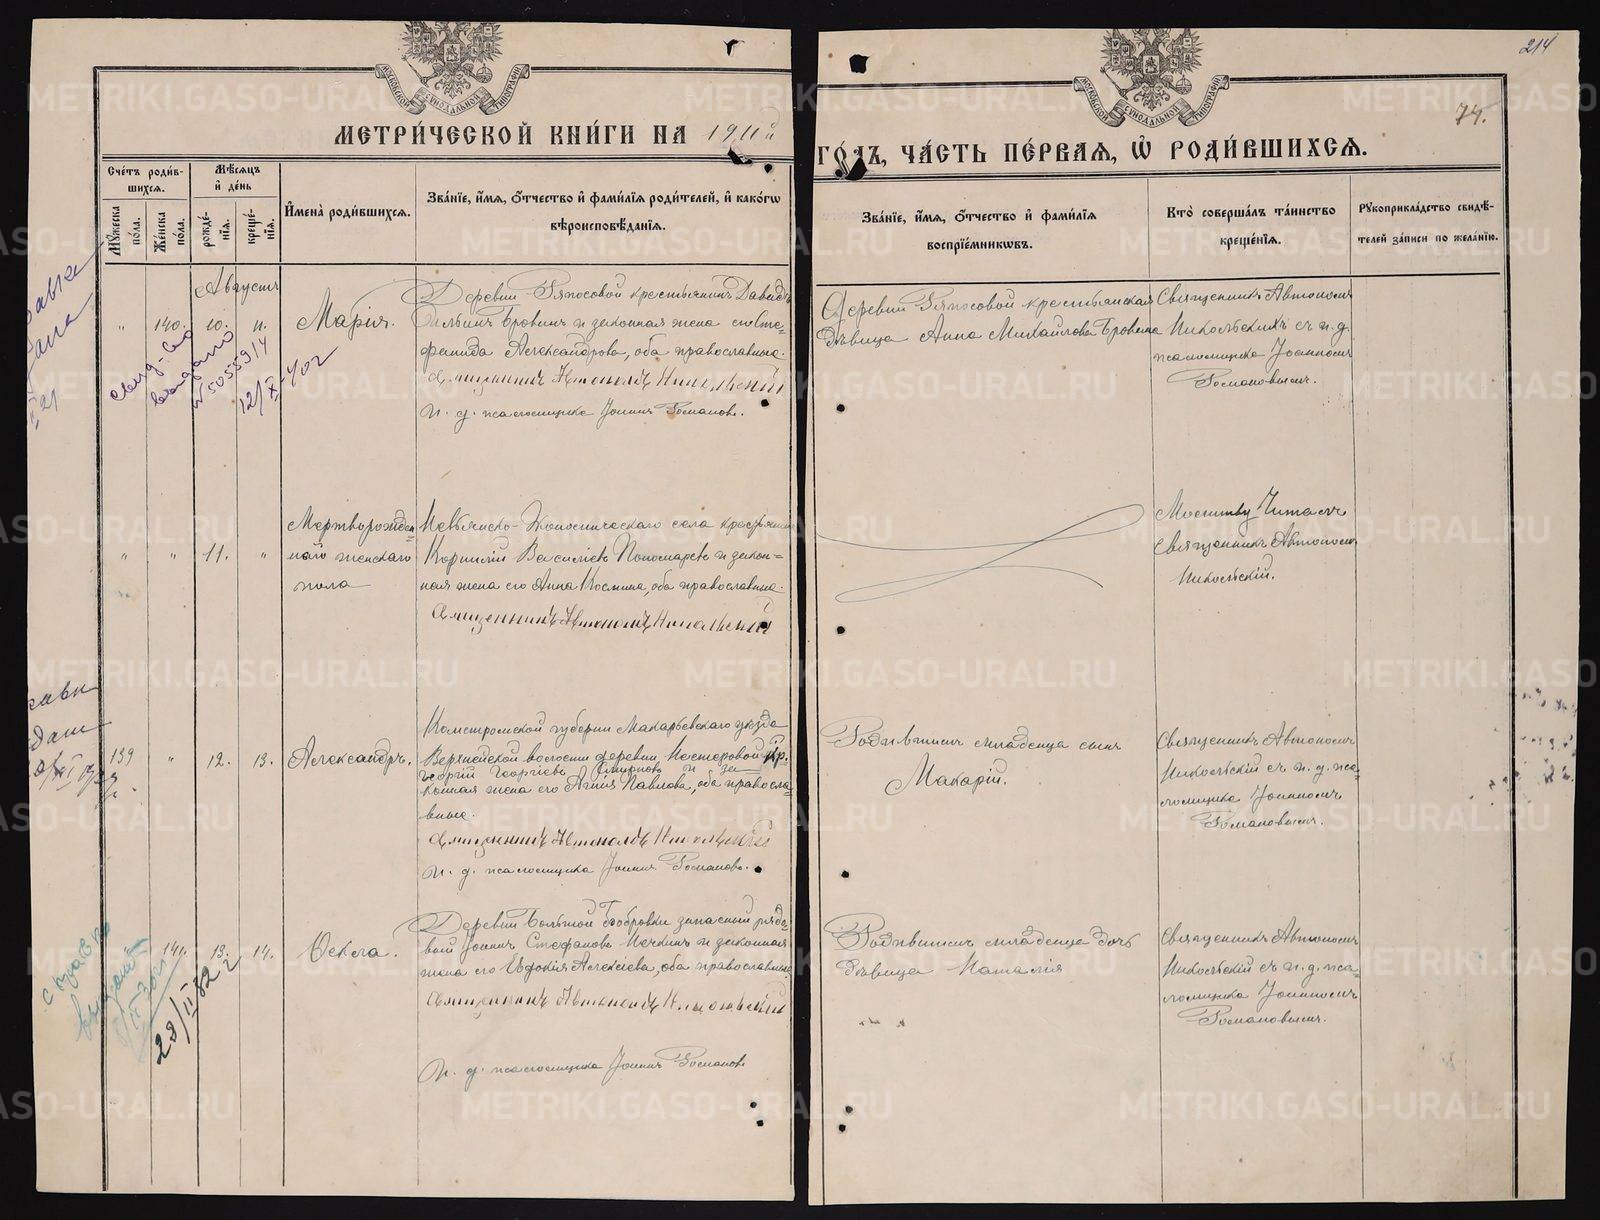 214
74.
МОСКОВСКОЙ СѴНОДАЛЬНОЙ ТИПОГРАФІИ
МОСКОВСКОЙ СѴНОДАЛЬНОЙ ТИПОГРАФІИ
МЕТРИ́ЧЕСКОЙ КНИ́ГИ НА 1911й
ГО́ДЪ, ЧА́СТЬ ПЕ́РВАЯ, Ѡ҆ РОДИ́ВШИХСЯ.
Сче́тъ роди́в-
шихся.
Мꙋ́жеска по́ла.
Же́нска по́ла.
Мѣ́сяцъ и҆ де́нь
рожде́нїя.
креще́нїя.
И҆мена̀ роди́вшихся.
Зва́нїе, и҆́мя, ѻ҆́тчество и҆ фами́лїя роди́телей, и҆ како́гѡ
вѣроисповѣ́данїя.
Зва́нїе, и҆́мя, ѻ҆́тчество и҆ фами́лїя
воспрїе́мникѡвъ.
Кто̀ соверша́лъ та́инство
креще́нїя.
Рꙋкоприкла́дство свидѣ́-
телей за́писи по жела́нїю.
Августъ
„ 140. 10. 11. Марія.
Деревни Ряпосовой крестьянинъ Давидъ
Ильинъ Бровинъ и законная жена его Сте-
фанида Александрова, оба православные.
Священникъ Автономъ Никольский
И. д. псаломщика Іоаннъ Романовъ.
Деревни Ряпосовой крестьянская
дѣвица Анна Михайлова Бровина
Священникъ Автономъ
Никольскихъ съ и. д.
псаломщика Іоанномъ
Романовымъ.
W5055914
12/X-402
„ „ 11. „
Мертворожден
наго женскаго
пола
Невьянско-Конопическаго села крестьянинъ
Корнилій Василіевъ Пономаревъ и закон-
ная жена его Анна Космина, оба православные.
Священникъ Автономъ Никольский
Молитву Читалъ
Священникъ Автономъ
Никольскій.
139 „ 12. 13. Александръ.
Костромской губерніи Макарьевскаго уѣзда
волости деревни Нестеровой кр.
Георгій Георгіевъ Смирновъ и за-
конная жена его Агнія Павлова, оба православ-
ные.
Священникъ Автономъ Никольский
И. д. псаломщика Іоаннъ Романовъ.
Родившимъ младенца сынъ
Макарій.
Священникъ Автономъ
Никольскій съ и. д. пса-
ломщика Іоанномъ
Романовымъ.
„ 141. 13. 14. Ѳекла.
Деревни Большой Бобровки запасный рядо-
вой Іоаннъ Стефановъ и законная
жена его Евдокія Алексіева, оба православные.
Священникъ Автономъ Никольский
И. д. псаломщика Іоаннъ Романовъ
Родившимъ младенца дочь
дѣвица Наталія
Священникъ Автономъ
Никольскій съ и. д. пса-
ломщика Іоанномъ
Романовымъ.
28/II 52 г